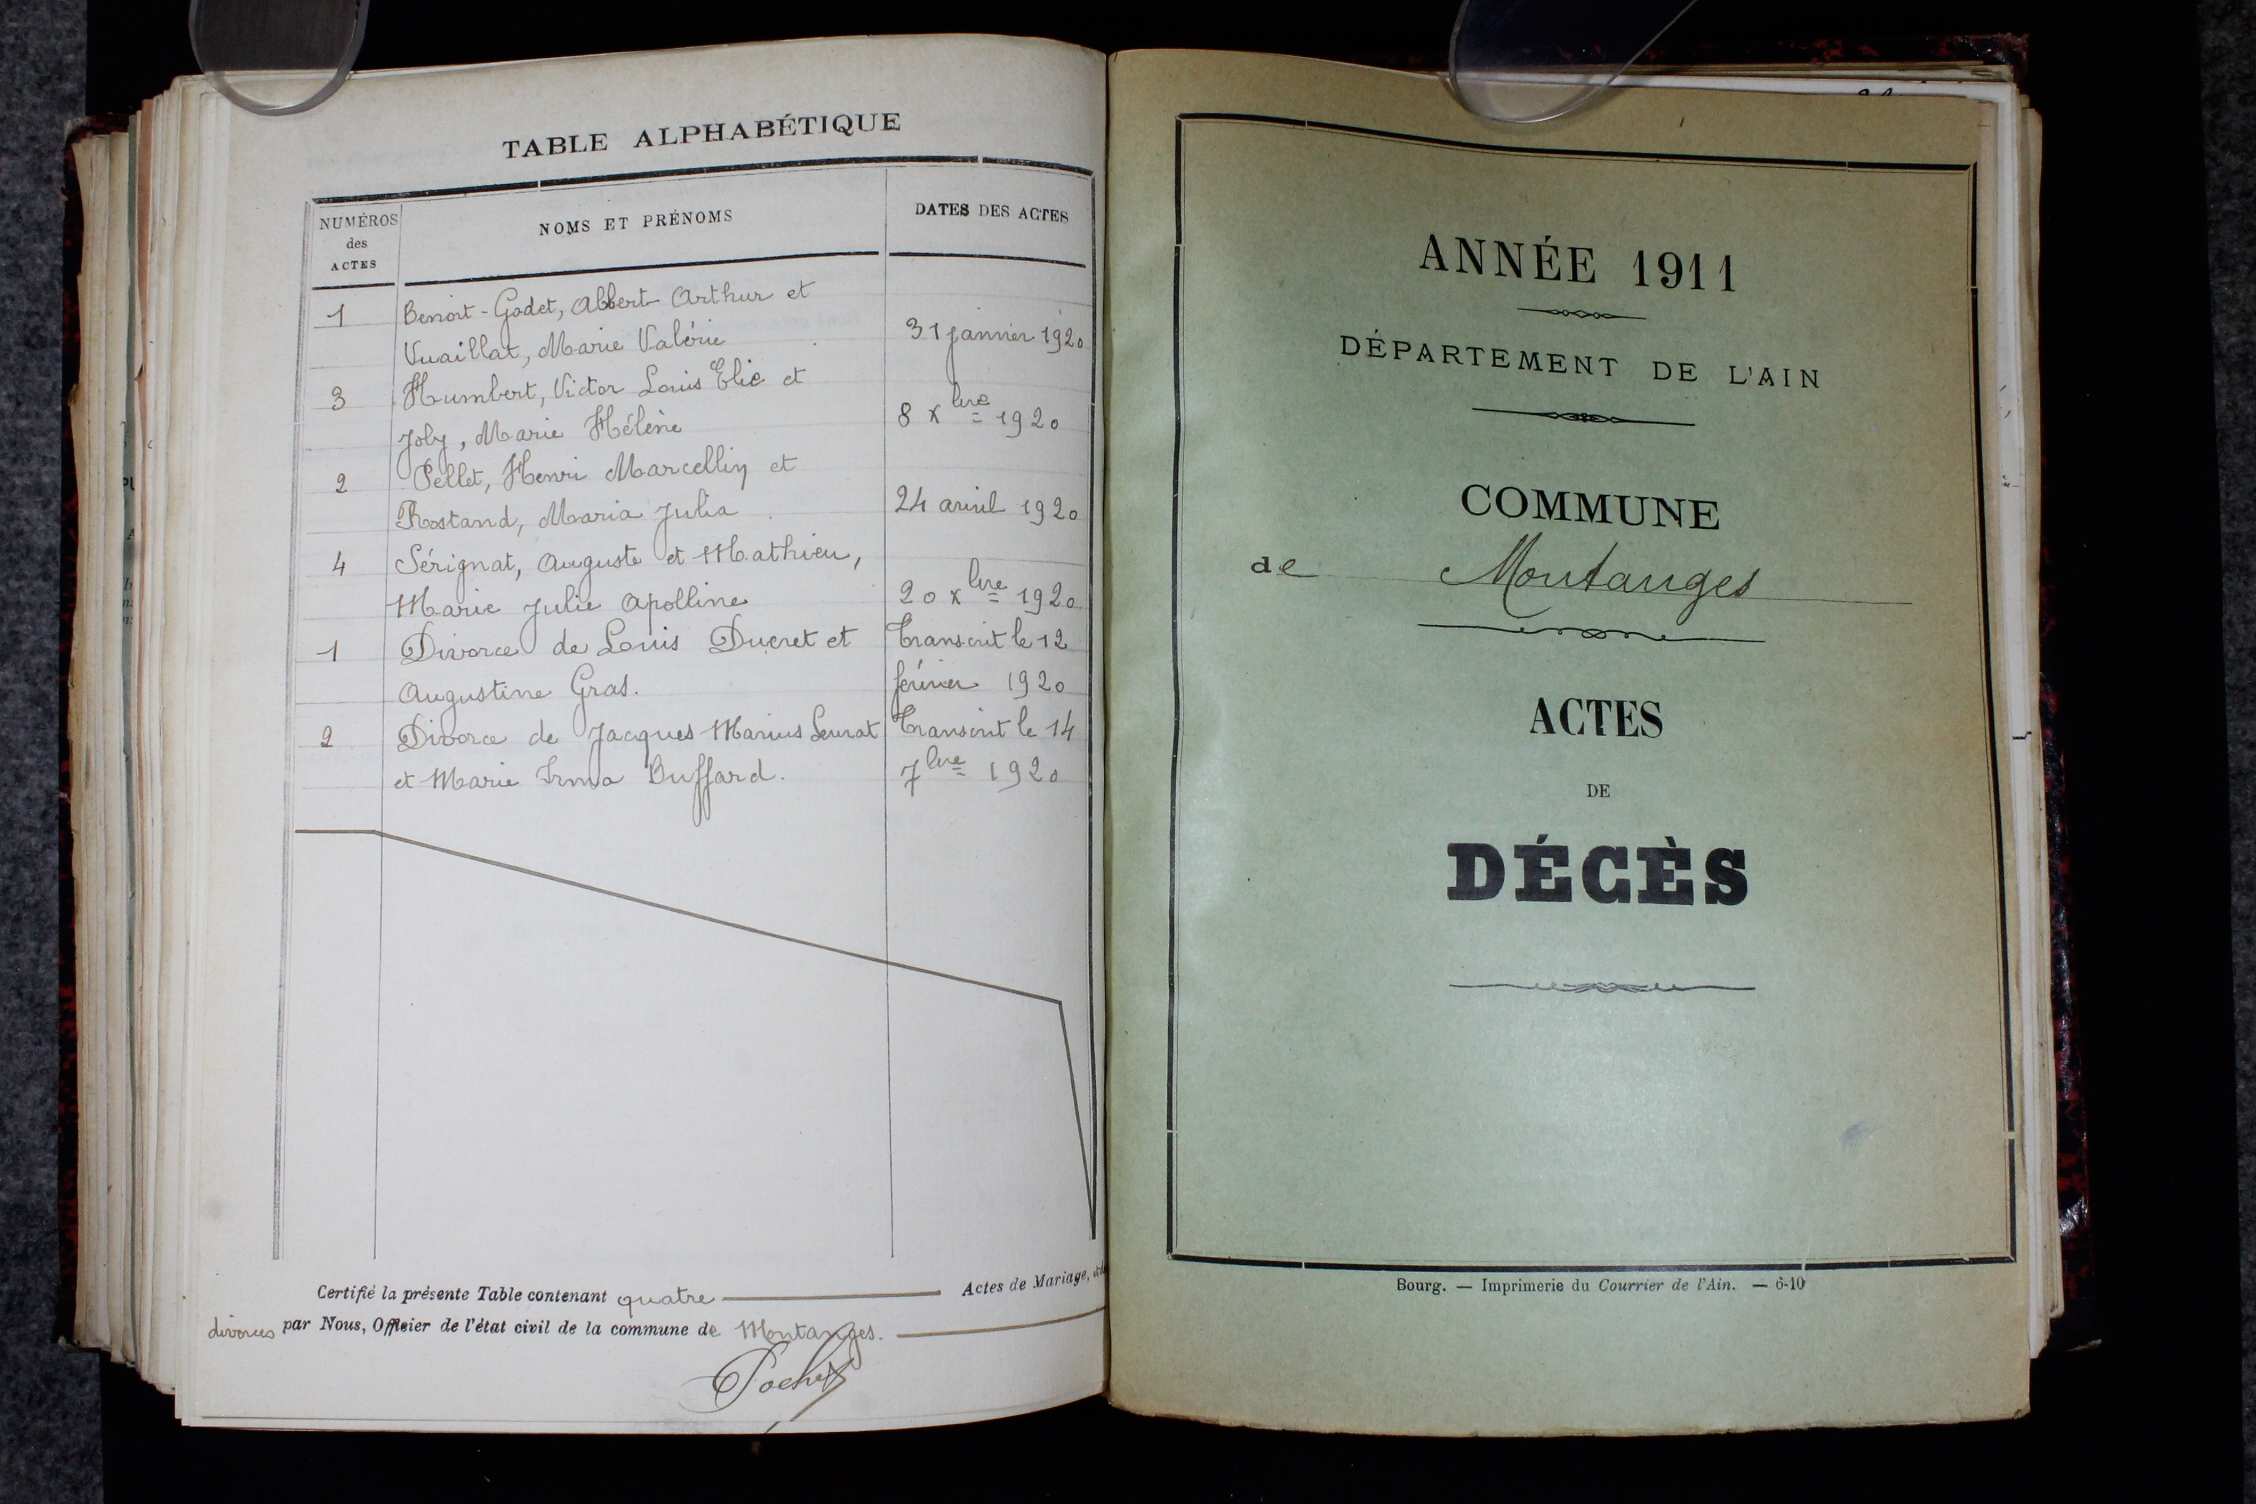 TABLE ALPHABÉTIQUE
NUMÉROS des ACTES
NOMS ET PRÉNOMS
DATES DES ACTES
1 Benoit-Godet, Albert Arthur et
Vuaillat, Marie Valérie 31 janvier 1920
3 Humbert, Victor Louis Elie et
Joly, Marie Hélène 8 xbre 1920
2 Pellet, Henri Marcellin et
Rostand, Maria Julia 24 avril 1920
4 Sérignat, Auguste et Mathieu,
Marie Julie Apolline 20 xbre 1920
1 Divorce de Louis Ducret et Transcrit le 12
Augustine Gras. février 1920
2 Divorce de Jacques Marius Seurat Transcrit le 14
et Marie Irma Buffard. 7bre 1920
Certifié la présente Table contenant quatre Actes de Mariage,
divorces par Nous, Officier de l'état civil de la commune de Montanges.
Pochet
ANNÉE 1911
DÉPARTEMENT DE L'AIN
COMMUNE
de Montanges
ACTES
DE
DÉCÈS
Bourg. — Imprimerie du Courrier de l'Ain. — 6-10